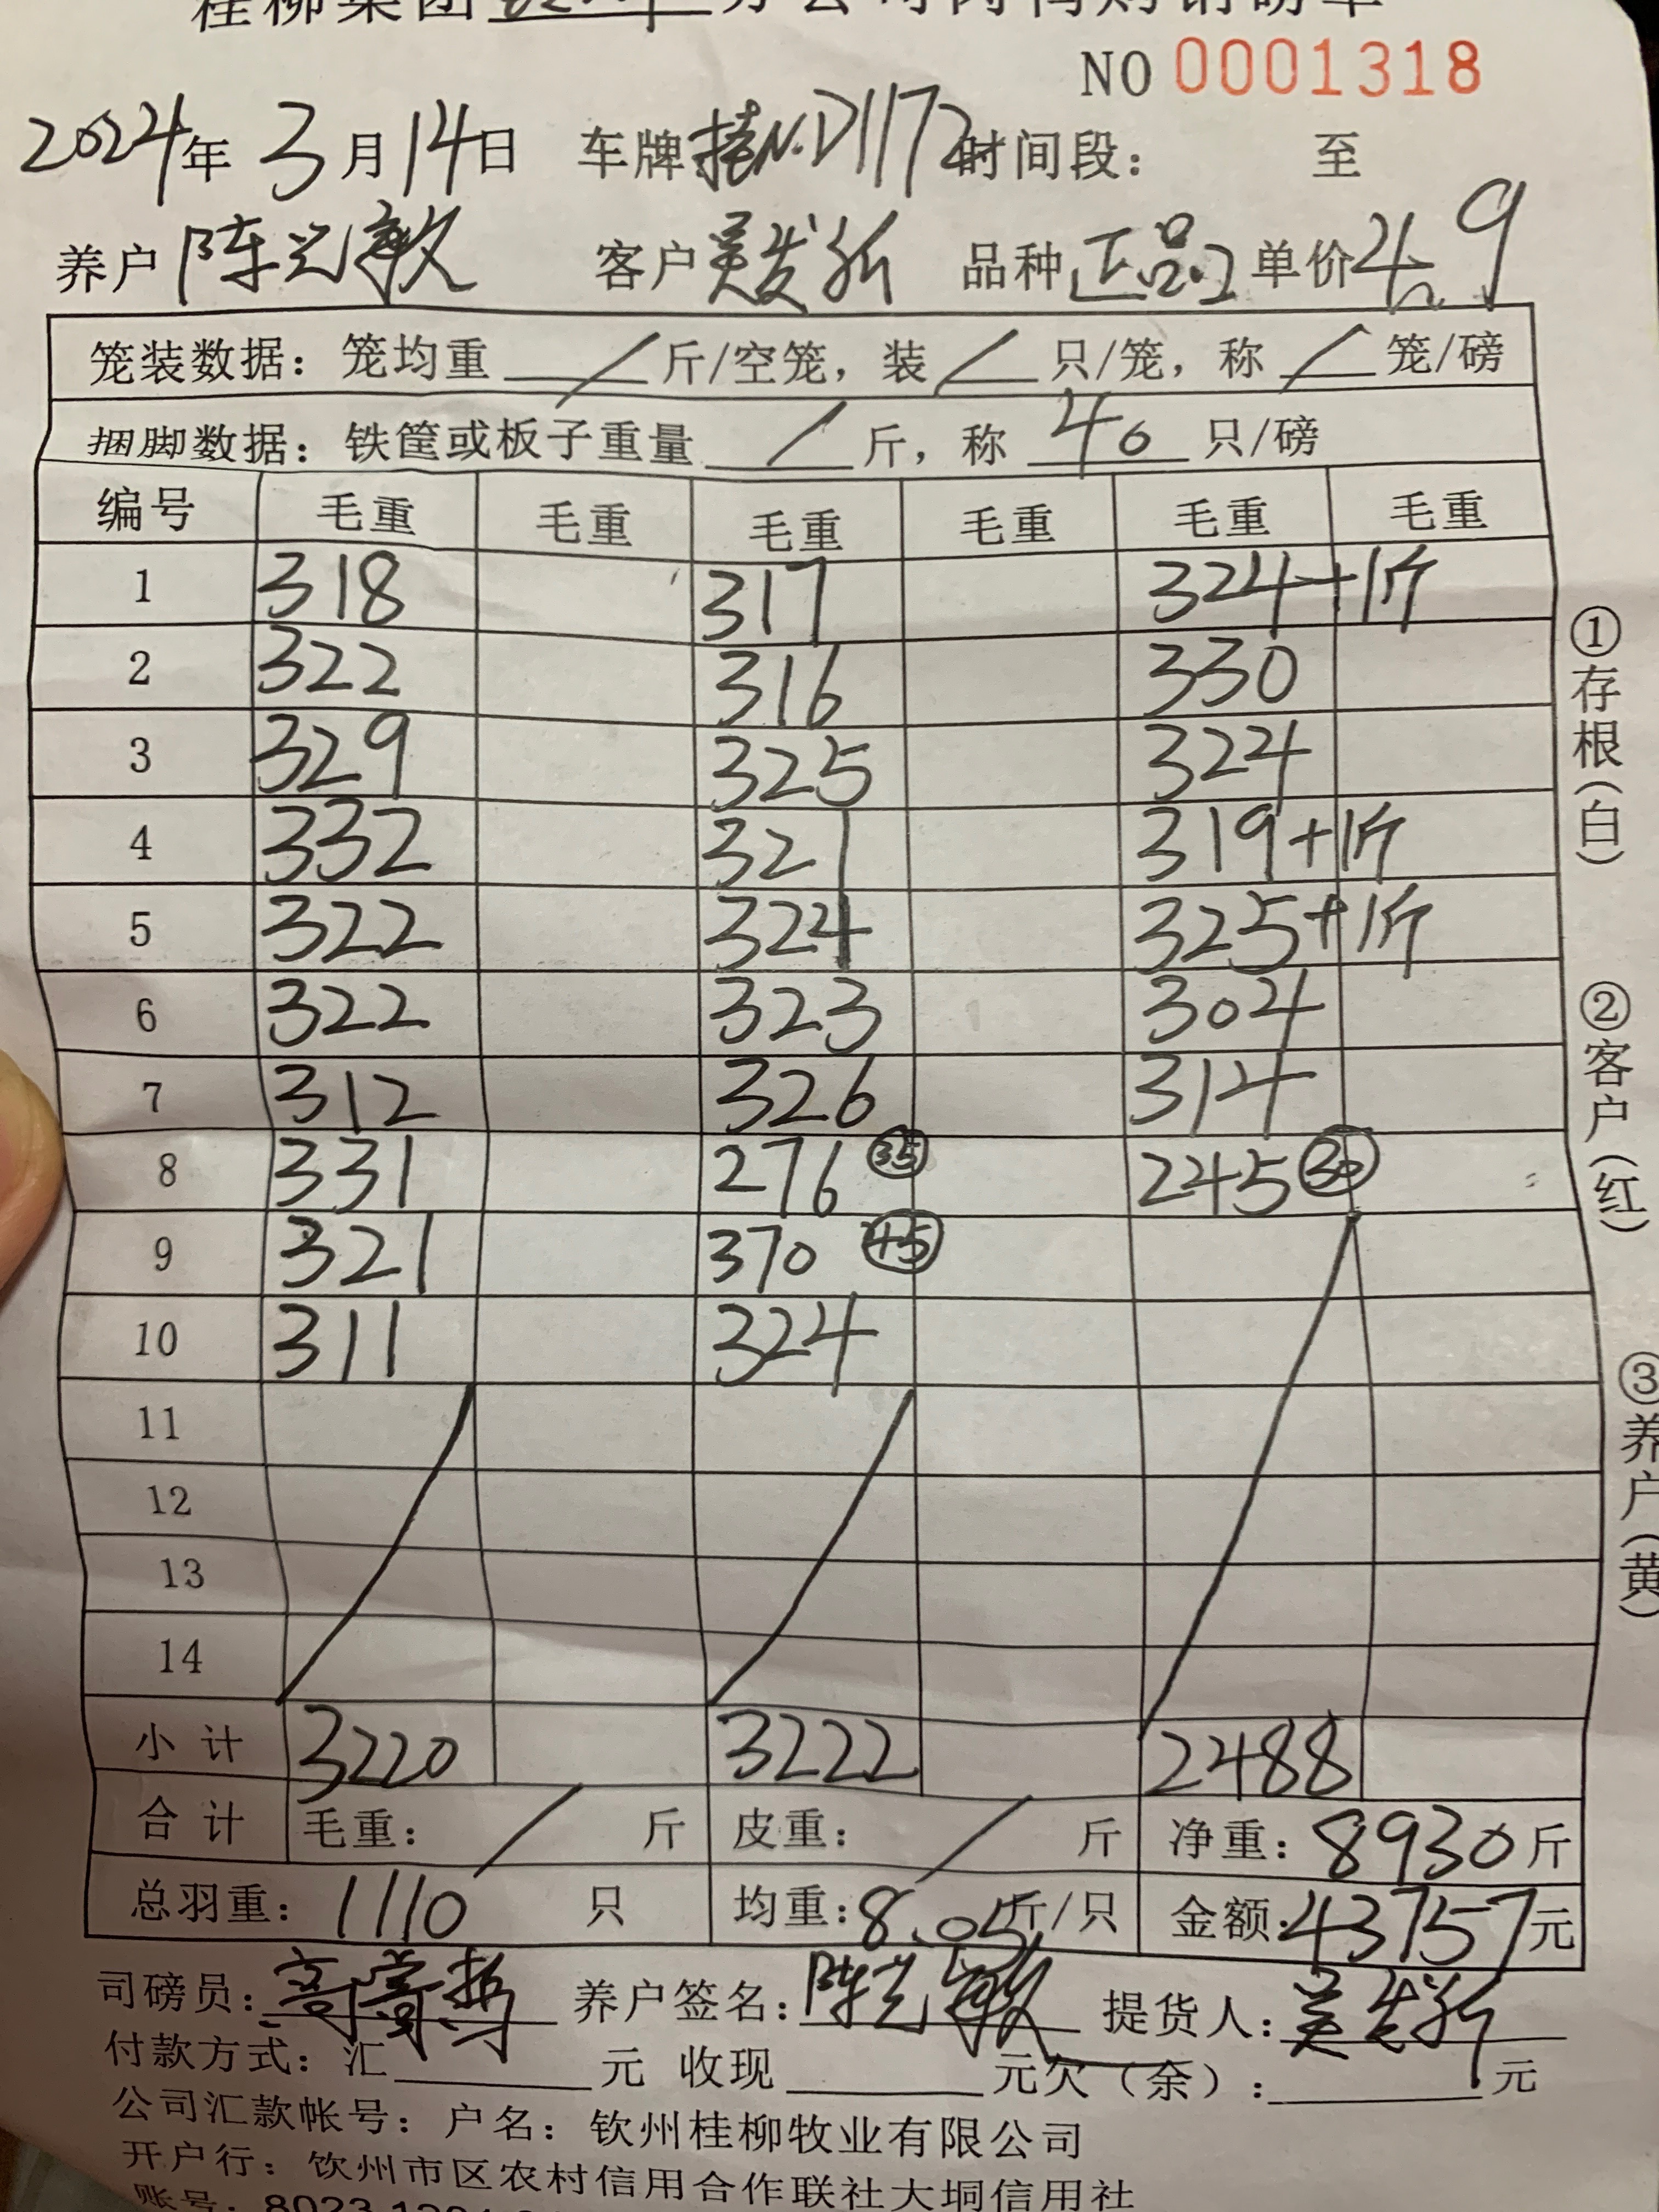 桂柳集团 分公司肉鸭购销磅单
NO 0001318
2024年 3月14日 车牌桂N.D1172 时间段： 至
养户 陈兴敏 客户 吴发 品种 正品 单价 4.9
笼装数据：笼均重 / 斤/空笼，装 / 只/笼，称 / 笼/磅
捆脚数据：铁筐或板子重量 / 斤，称 40 只/磅
编号 毛重 毛重 毛重 毛重 毛重 毛重
1 318 317 324+1斤
2 322 316 330
3 329 325 324
4 332 321 319+1斤
5 322 324 325+1斤
6 322 323 304
7 312 326 314
8 331 276 35 245 30
9 321 370 45
10 311 324
11
12
13
14
小计 3220 3222 2488
合计 毛重： / 斤 皮重： / 斤 净重：8930斤
总羽重：1110 只 均重：8.05斤/只 金额：43757元
司磅员： 养户签名：陈兴敏 提货人：吴发
付款方式：汇 元 收现 元欠（余）： 元
公司汇款帐号：户名：钦州桂柳牧业有限公司
开户行：钦州市区农村信用合作联社大垌信用社
账号：8023
①存根（白）
②客户（红）
③养户（黄）